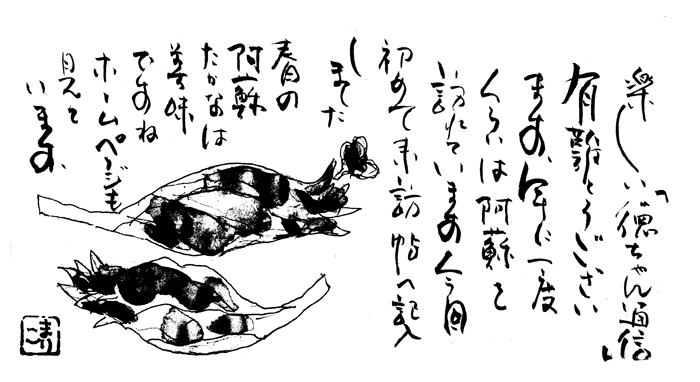 楽しい『徳ちゃん通信』
有難とうござい
ます、年に一度
くらいは阿蘇を
訪れています今回
初めて来訪帖へ記入
しました
春の
阿蘇
たかなは
美味
ですね
ホームページも
見て
います。